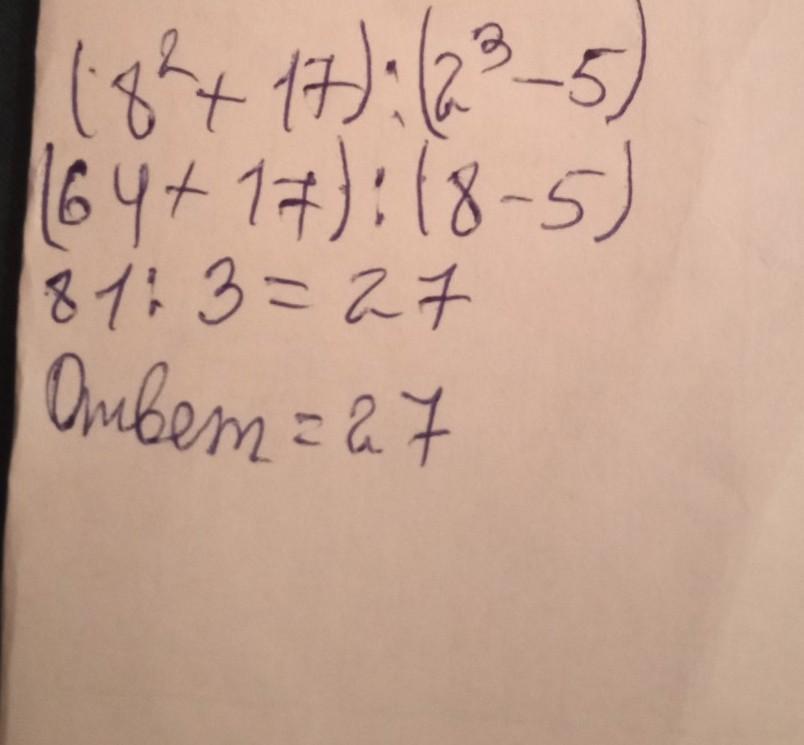 (8²+17):(2³-5)
(64+17):(8-5)
81:3=27
Ответ=27